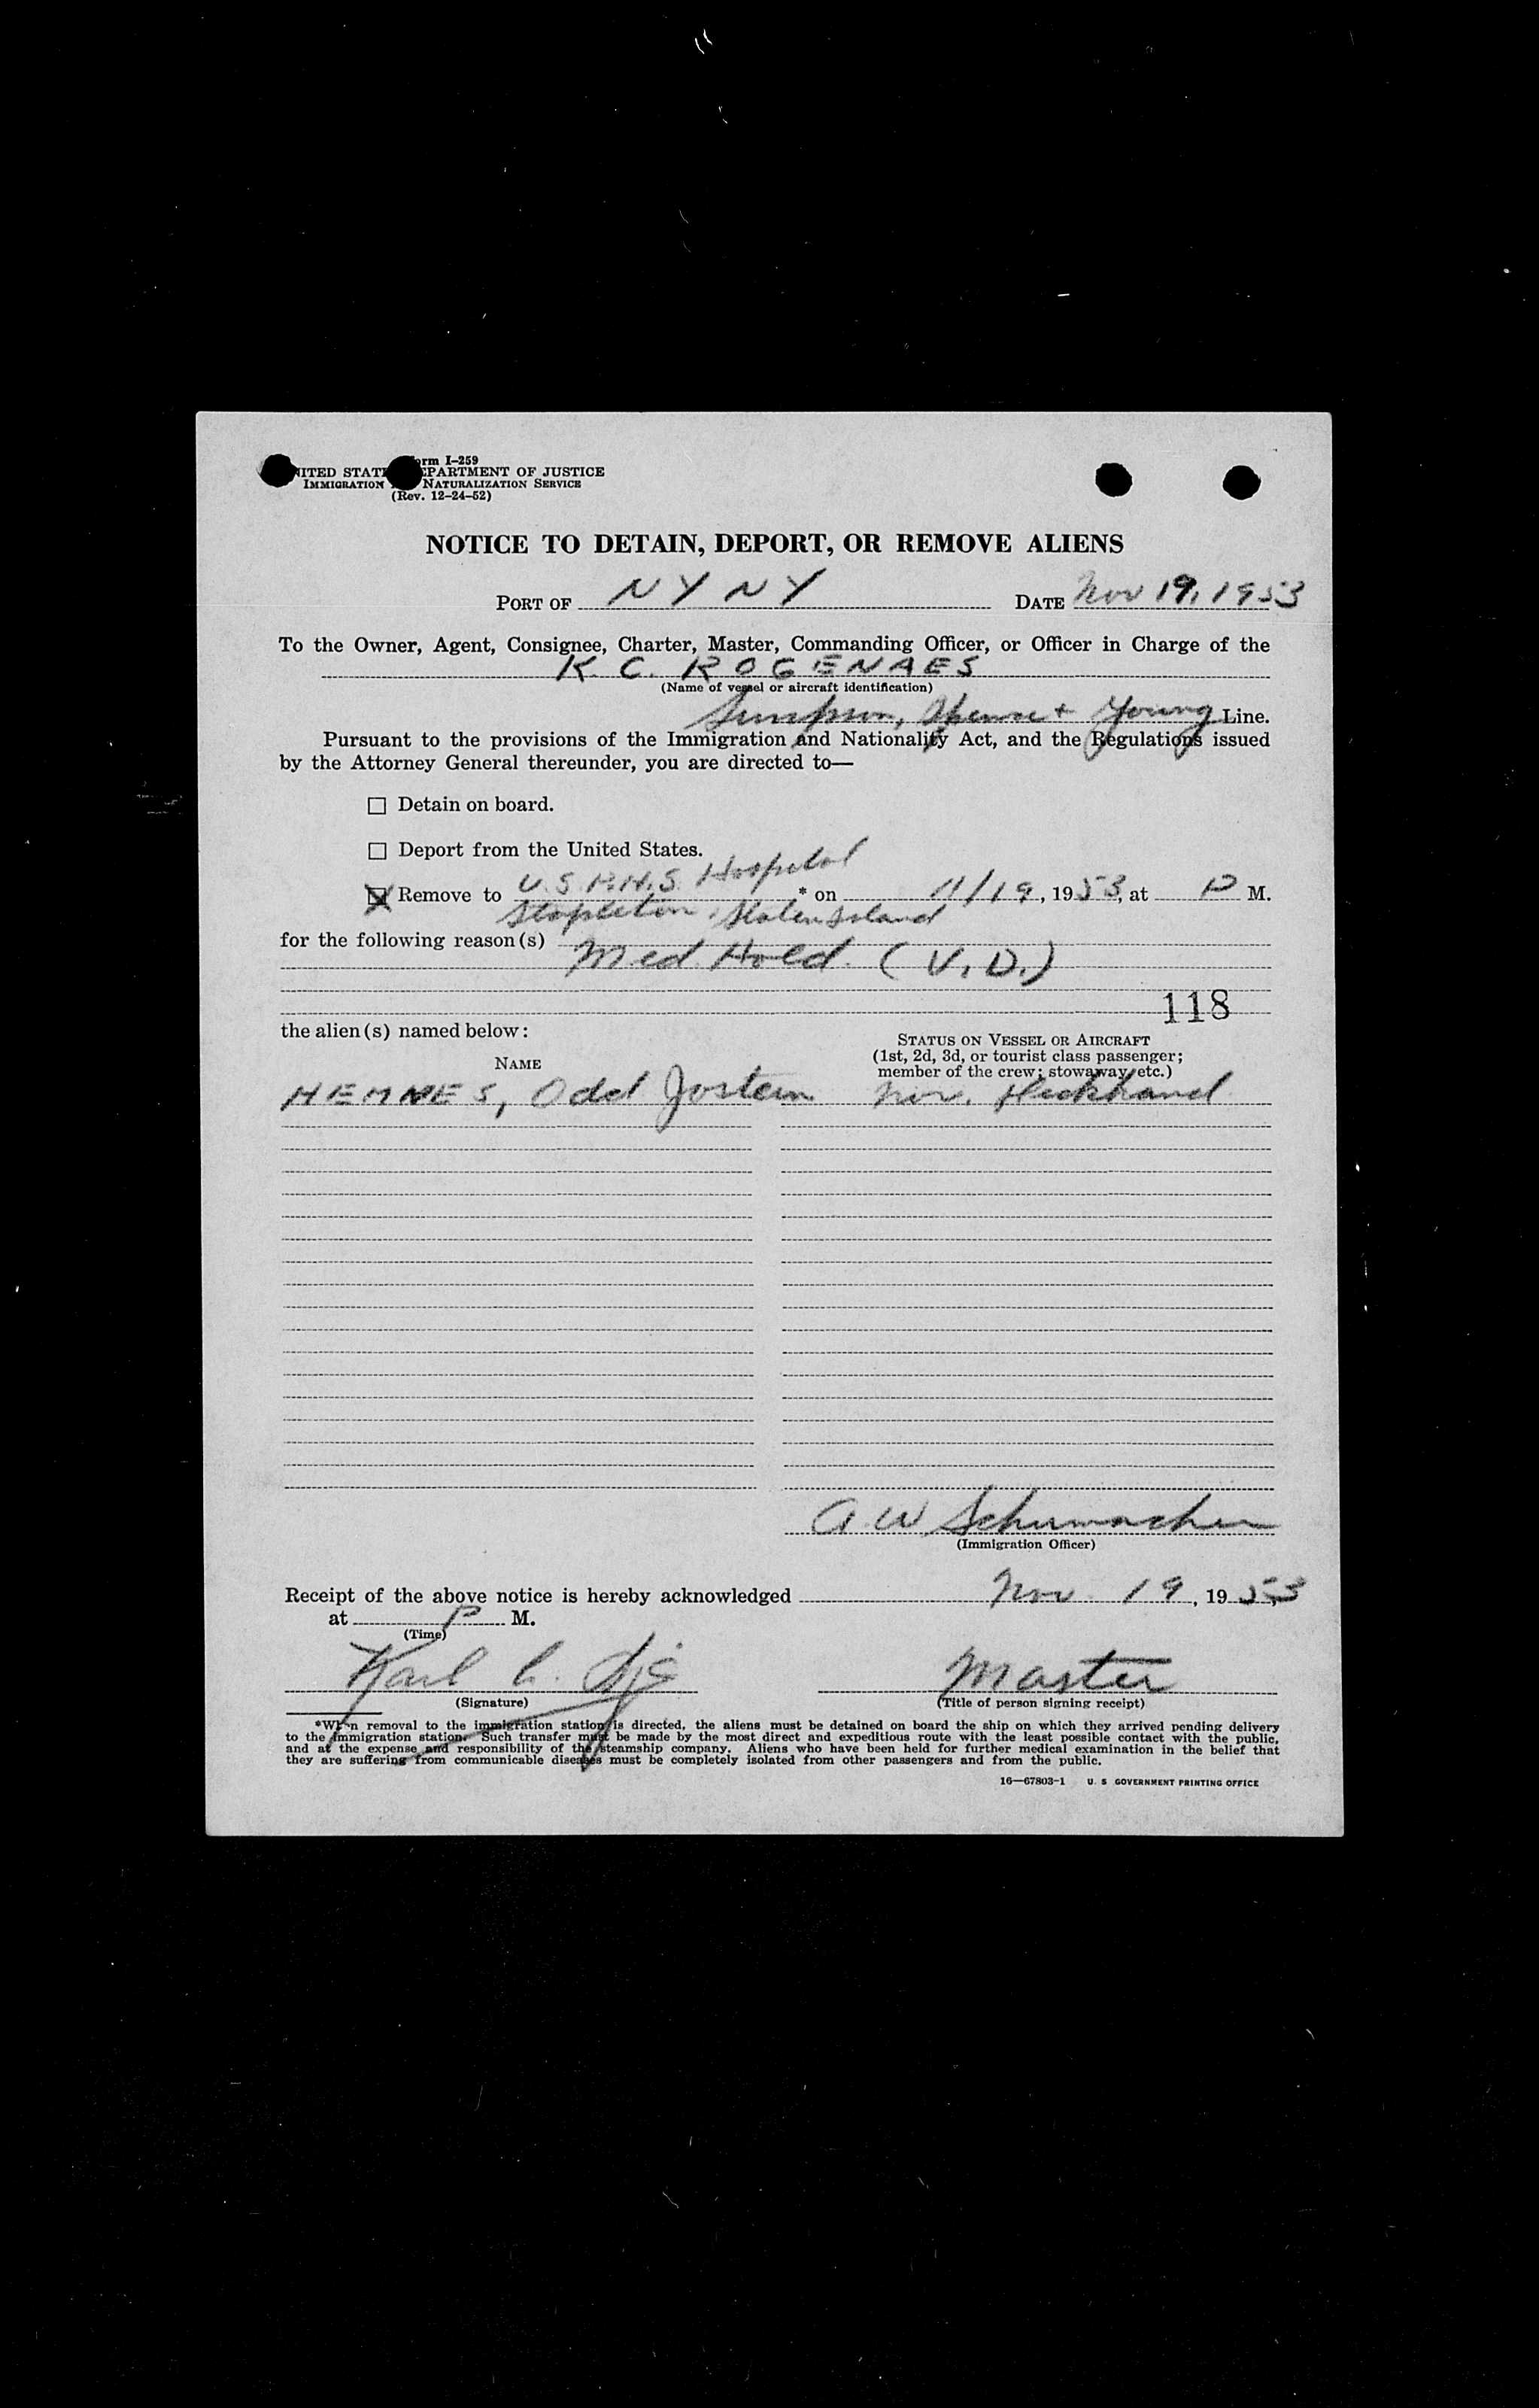 Form I-259
UNITED STATES DEPARTMENT OF JUSTICE
IMMIGRATION NATURALIZATION SERVICE
(Rev. 12-24-52)
NOTICE TO DETAIN, DEPORT, OR REMOVE ALIENS
PORT OF NY NY DATE Nov 19, 1953
To the Owner, Agent, Consignee, Charter, Master, Commanding Officer, or Officer in Charge of the
K. C. ROGENAES
(Name of vessel or aircraft identification)
Simpson, Spence + Young Line.
Pursuant to the provisions of the Immigration and Nationality Act, and the Regulations issued
by the Attorney General thereunder, you are directed to—
☐ Detain on board.
☐ Deport from the United States.
☒ Remove to U.S.P.H.S. Hospital * on 11/19, 1953, at P M.
Stapleton, Staten Island
for the following reason(s)
Med. Hold. (V.D.)
118
the alien(s) named below:
STATUS ON VESSEL OR AIRCRAFT
(1st, 2d, 3d, or tourist class passenger;
NAME
member of the crew; stowaway, etc.)
HEMNES, Odd Jostein Nor. Deckhand
A. W Schumacher
(Immigration Officer)
Receipt of the above notice is hereby acknowledged Nov. 19, 1953
at P M.
(Time)
Karl C. Master
(Signature) (Title of person signing receipt)
*When removal to the immigration station is directed, the aliens must be detained on board the ship on which they arrived pending delivery
to the immigration station. Such transfer must be made by the most direct and expeditious route with the least possible contact with the public,
and at the expense and responsibility of the steamship company. Aliens who have been held for further medical examination in the belief that
they are suffering from communicable diseases must be completely isolated from other passengers and from the public.
16—67803-1 U. S GOVERNMENT PRINTING OFFICE